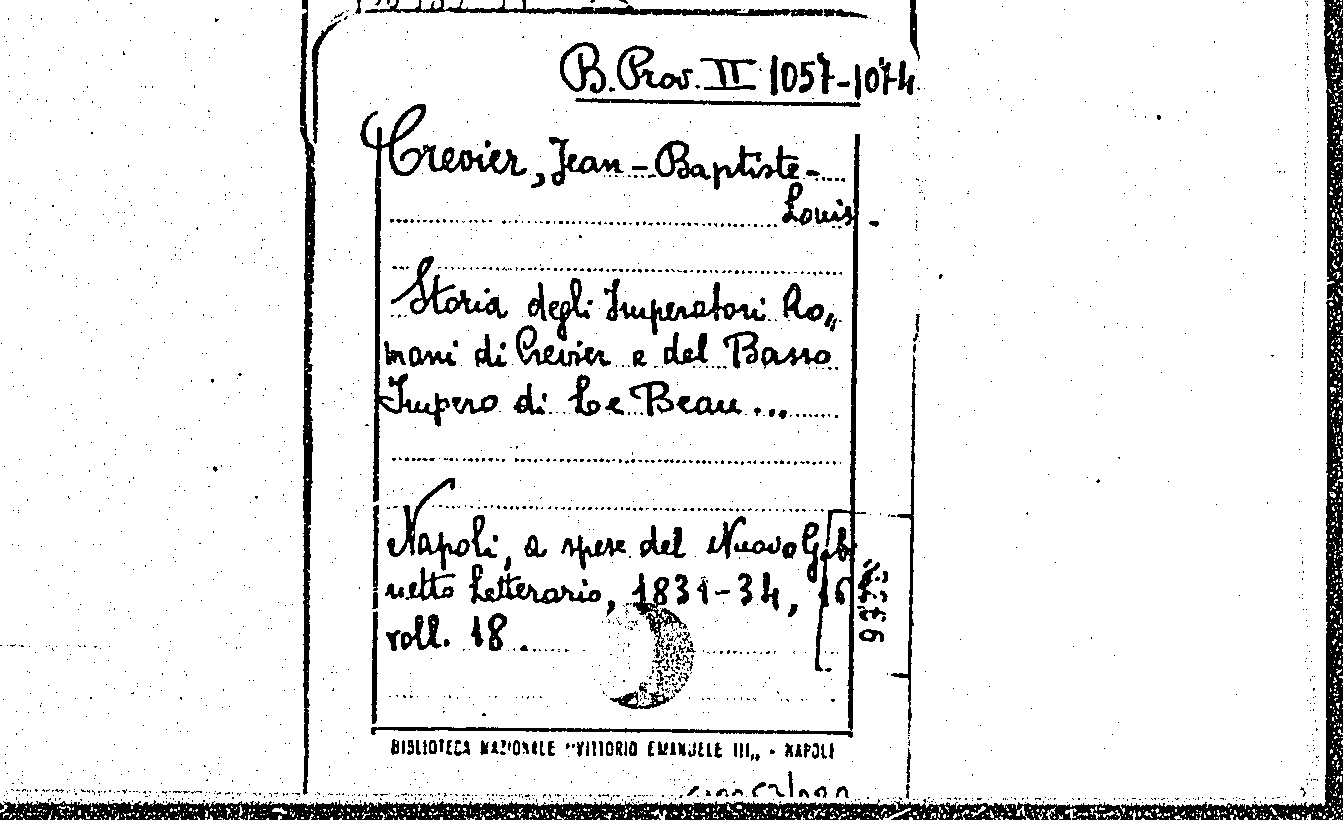 B. Prov. II 1057-1074
Crevier, Jean-Baptiste-
Louis.
Storia degli Imperatori Ro„
mani di Crevier e del Basso
Impero di Le Beau...
Napoli, a spese del Nuovo Gabi
netto Letterario, 1831-34, 16
voll. 18.
BIBLIOTECA NAZIONALE "VITTORIO EMANUELE III„ - NAPOLI